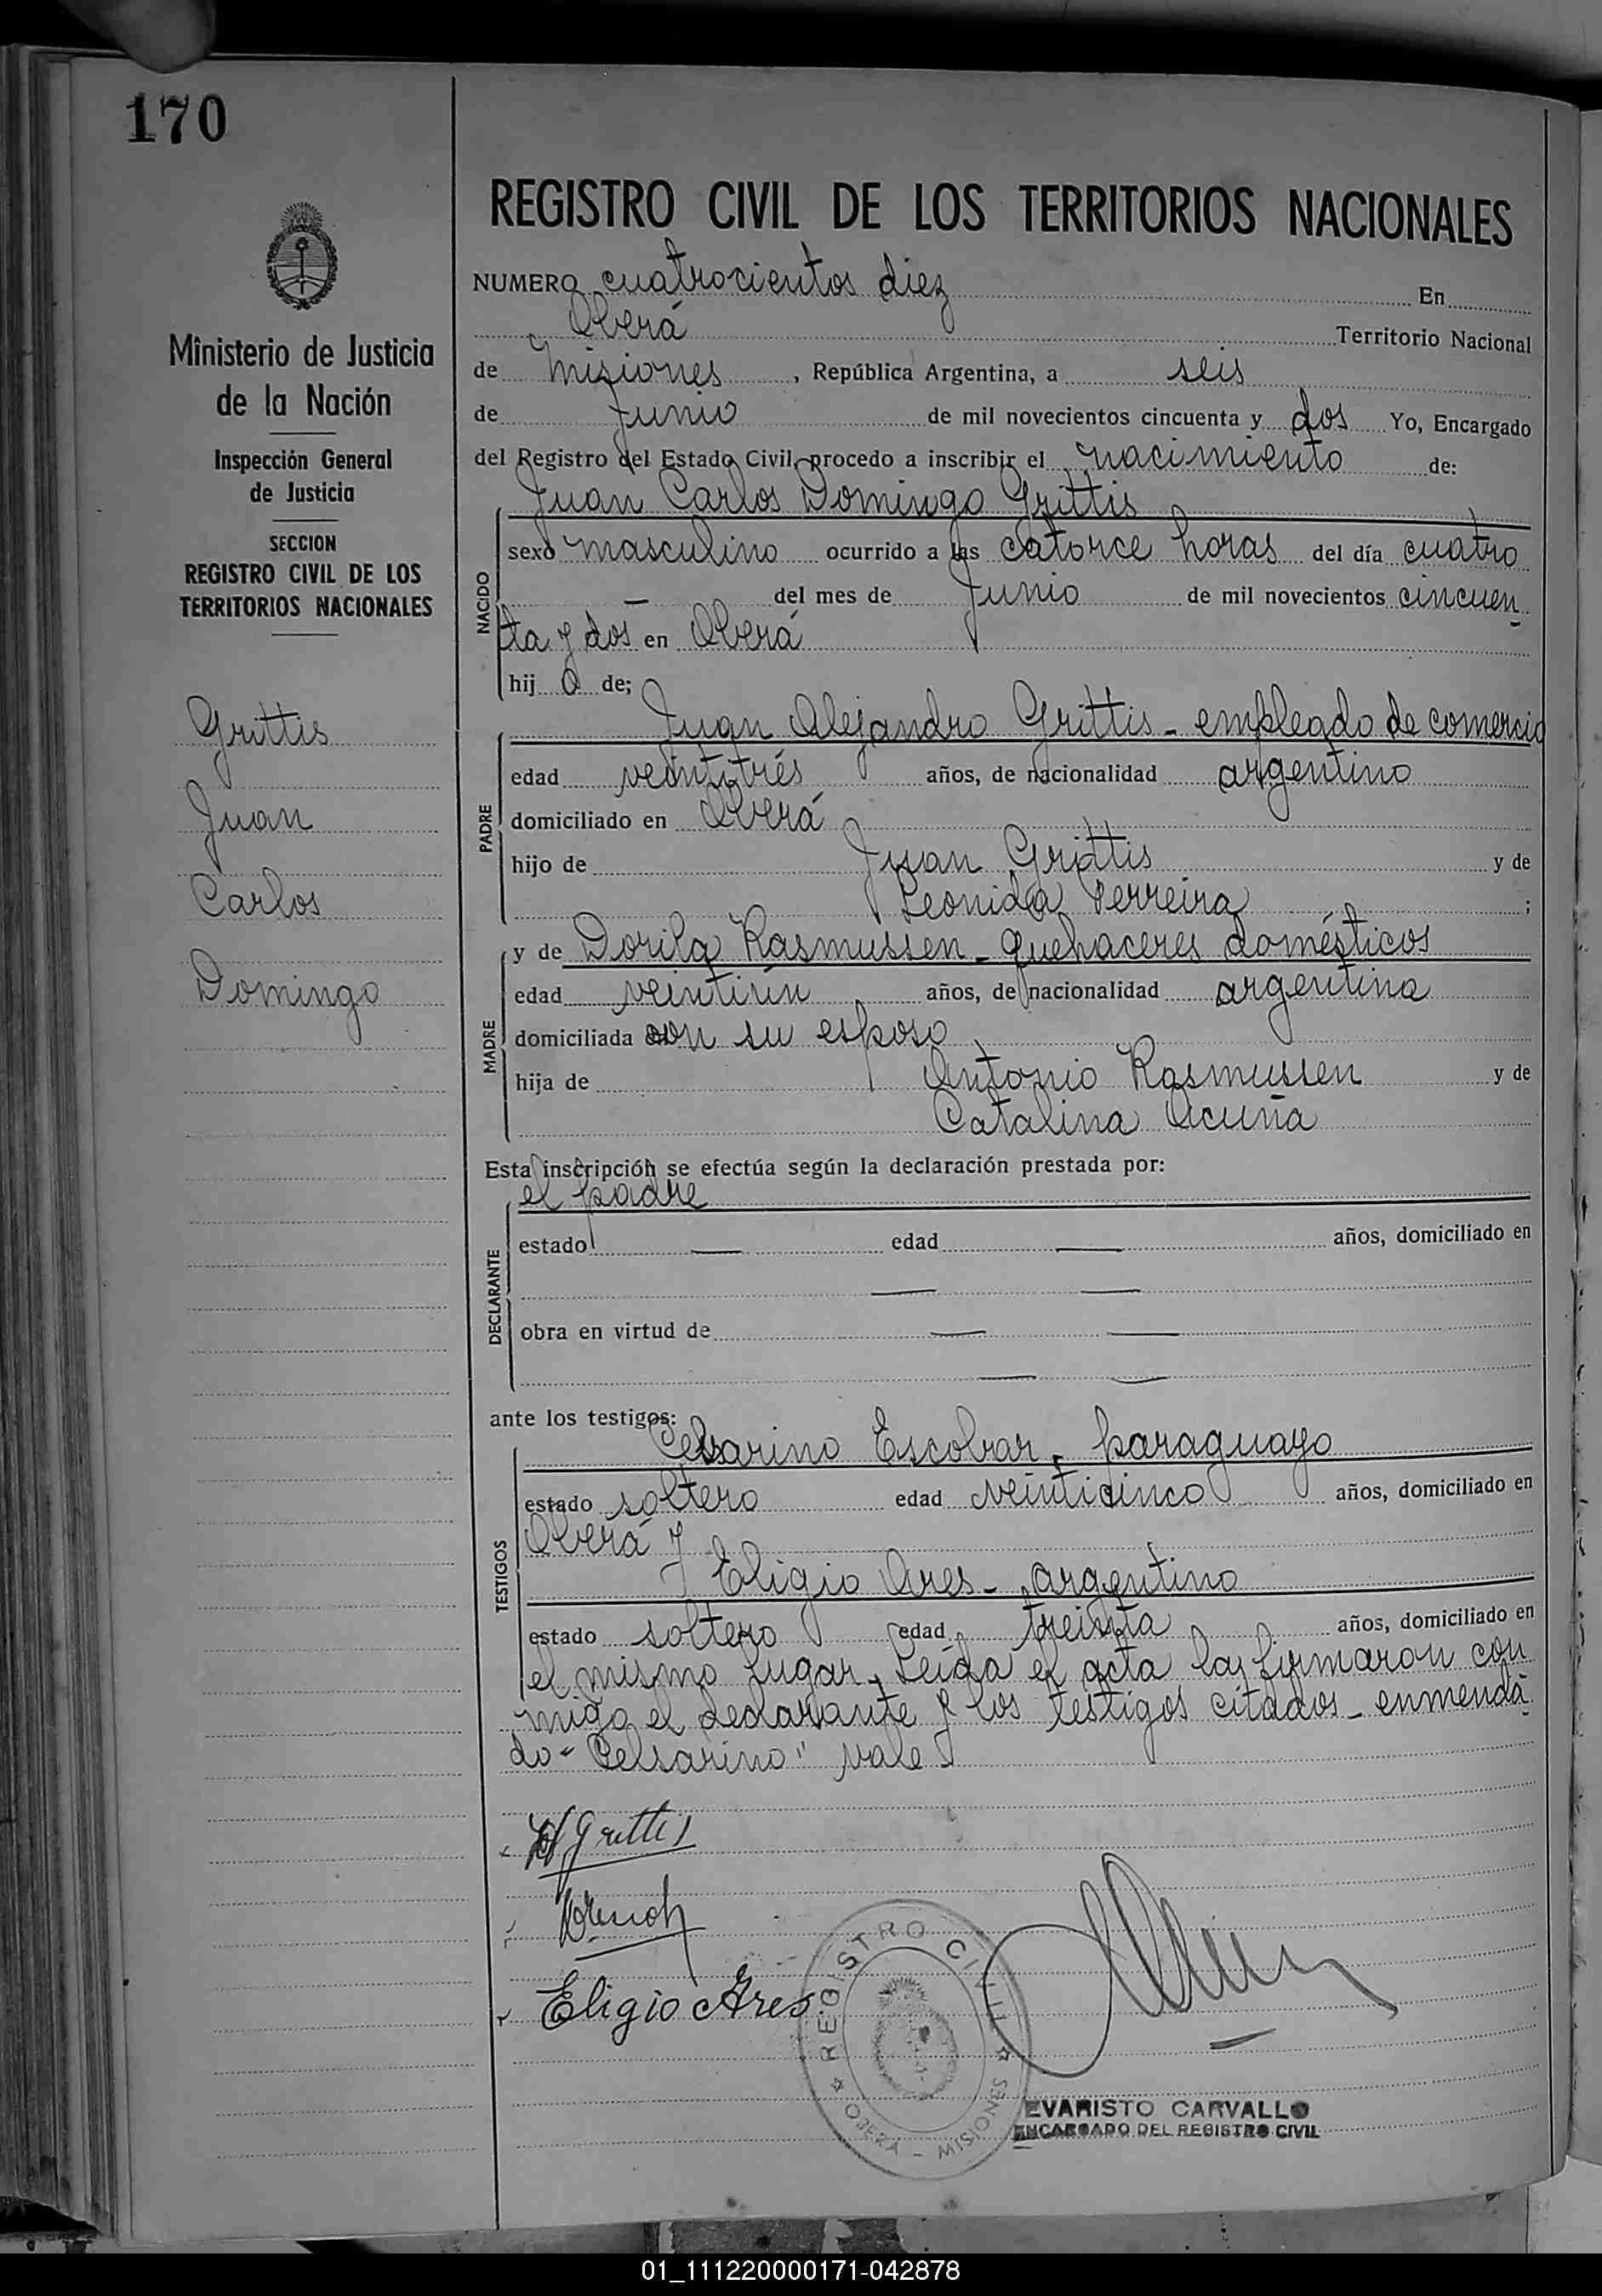 170
Ministerio de Justicia
de la Nación
Inspección General
de Justicia
SECCION
REGISTRO CIVIL DE LOS
TERRITORIOS NACIONALES
Grittis
Juan
Carlos
Domingo
REGISTRO CIVIL DE LOS TERRITORIOS NACIONALES
NUMERO cuatrocientos diez En
Oberá Territorio Nacional
de Misiones, República Argentina, a seis
de Junio de mil novecientos cincuenta y dos Yo, Encargado
del Registro del Estado Civil, procedo a inscribir el nacimiento de:
Juan Carlos Domingo Grittis
NACIDO
sexo masculino ocurrido a las catorce horas del día cuatro
— del mes de Junio de mil novecientos cincuen
ta y dos en Oberá
hij o de;
PADRE
Juan Alejandro Grittis - empleado de comercio
edad veintitrés años, de nacionalidad argentino
domiciliado en Oberá
hijo de Juan Grittis y de
Leonida Ferreira;
MADRE
y de Dorila Rasmussen - quehaceres domésticos
edad veintiun años, de nacionalidad argentina
domiciliada con su esposo
hija de Antonio Rasmussen y de
Catalina Acuña
Esta inscripción se efectúa según la declaración prestada por:
el padre
DECLARANTE
estado — edad — años, domiciliado en
— —
obra en virtud de — —
— —
ante los testigos:
TESTIGOS
Celsarino Escobar - paraguayo
estado soltero edad veinticinco años, domiciliado en
Oberá y
Eligio Ares - argentino
estado soltero edad treinta años, domiciliado en
el mismo lugar. Leída el acta la firmaron con
migo el declarante y los testigos citados - enmenda
do "Celsarino" vale -
Grittis
Eligio Ares
REGISTRO CIVIL
OBERÁ - MISIONES
EVARISTO CARVALLO
ENCARGADO DEL REGISTRO CIVIL
01_111220000171-042878